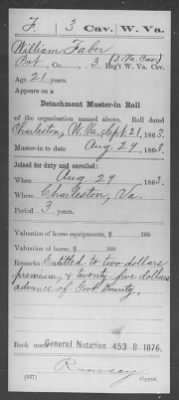 F. 3 Cav. W. Va.
William Faber
Pvt., Co. 3 (3 Va. Cav.) Reg't W. Va. Cav.
Age 21 years.
Appears on a
Detachment Muster-in Roll
of the organization named above. Roll dated
Charleston, W. Va. Sept. 21, 1863.
Muster-in to date Aug 29, 1863.
Joined for duty and enrolled:
When Aug 29 1863.
Where Charleston, Va.
Period 3 years.
Valuation of horse equipments, $ 100
Valuation of horse, $ 100
Remarks Entitled to two dollars
premium, & twenty-five dollars
advance of Govt Bounty.
Book mark: General Notation 453 B 1876.
Ramsey
(357) Copyist.